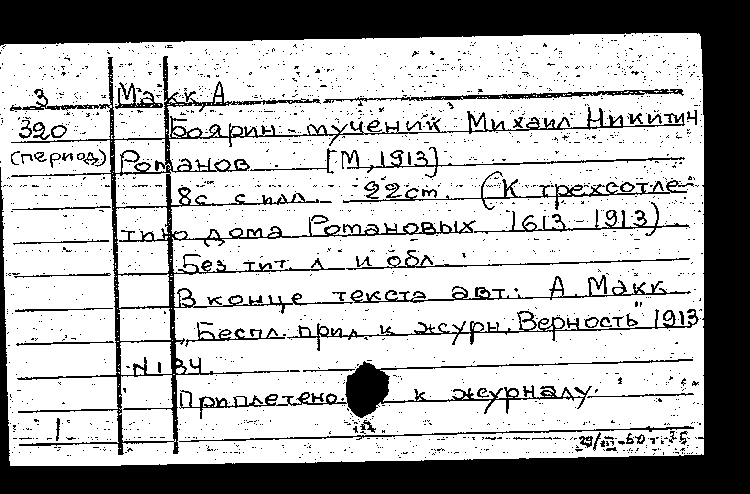 3 Макк, А
320 Боярин-мученик Михаил Никитич
(период) Романов. [М, 1913].
8с. с илл. 22см. (К трехсотле-
тию дома Романовых. 1613-1913).
Без тит. л. и обл.
В конце текста авт.: А. Макк
"Беспл. прил. к журн. Верность" 1913
N 134.
Приплетено к журналу.
1